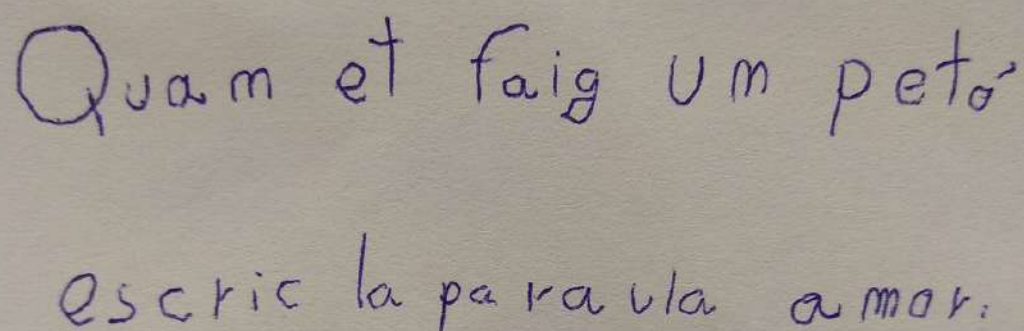 Quam et faig um petó
escric la paraula amor.